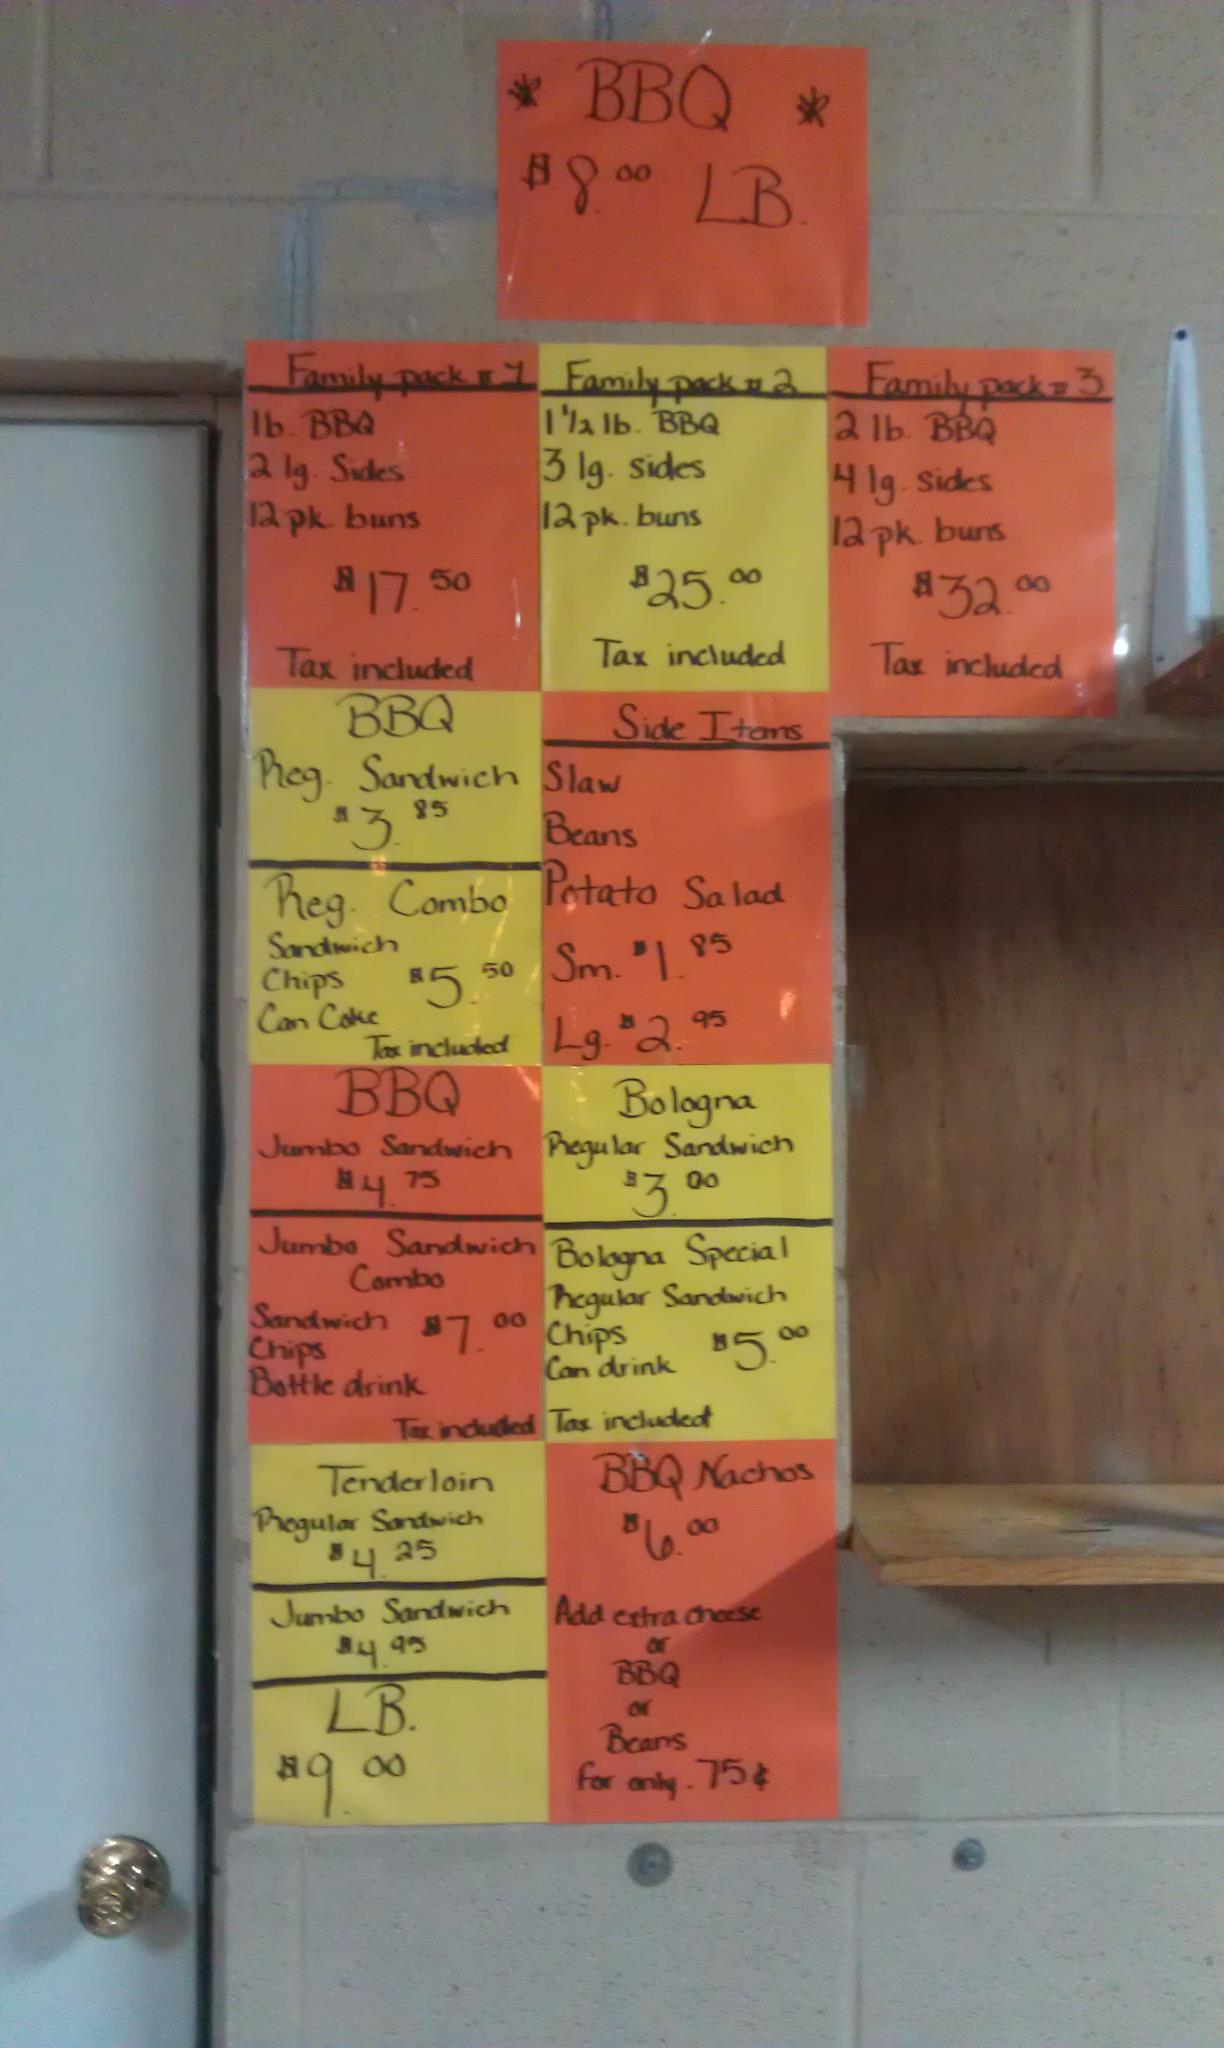 * BBQ *
$8.00 LB.
Family pack # 1
1lb. BBQ
2 lg. Sides
12 pk. buns
$17.50
Tax included
Family pack # 2
1 1/2 lb. BBQ
3 lg. sides
12 pk. buns
$25.00
Tax included
Family pack # 3
2 lb. BBQ
4 lg. sides
12 pk. buns
$32.00
Tax included
BBQ
Reg. Sandwich
$3.85
Reg. Combo
Sandwich
Chips $5.50
Can Coke
Tax included
Side Items
Slaw
Beans
Potato Salad
Sm. $1.85
Lg. $2.95
BBQ
Jumbo Sandwich
$4.75
Jumbo Sandwich
Combo
Sandwich $7.00
Chips
Bottle drink
Tax included
Bologna
Regular Sandwich
$3.00
Bologna Special
Regular Sandwich
Chips $5.00
Can drink
Tax included
Tenderloin
Regular Sandwich
$4.25
Jumbo Sandwich
$4.95
LB.
$9.00
BBQ Nachos
$6.00
Add extra cheese
or
BBQ
or
Beans
for only .75¢